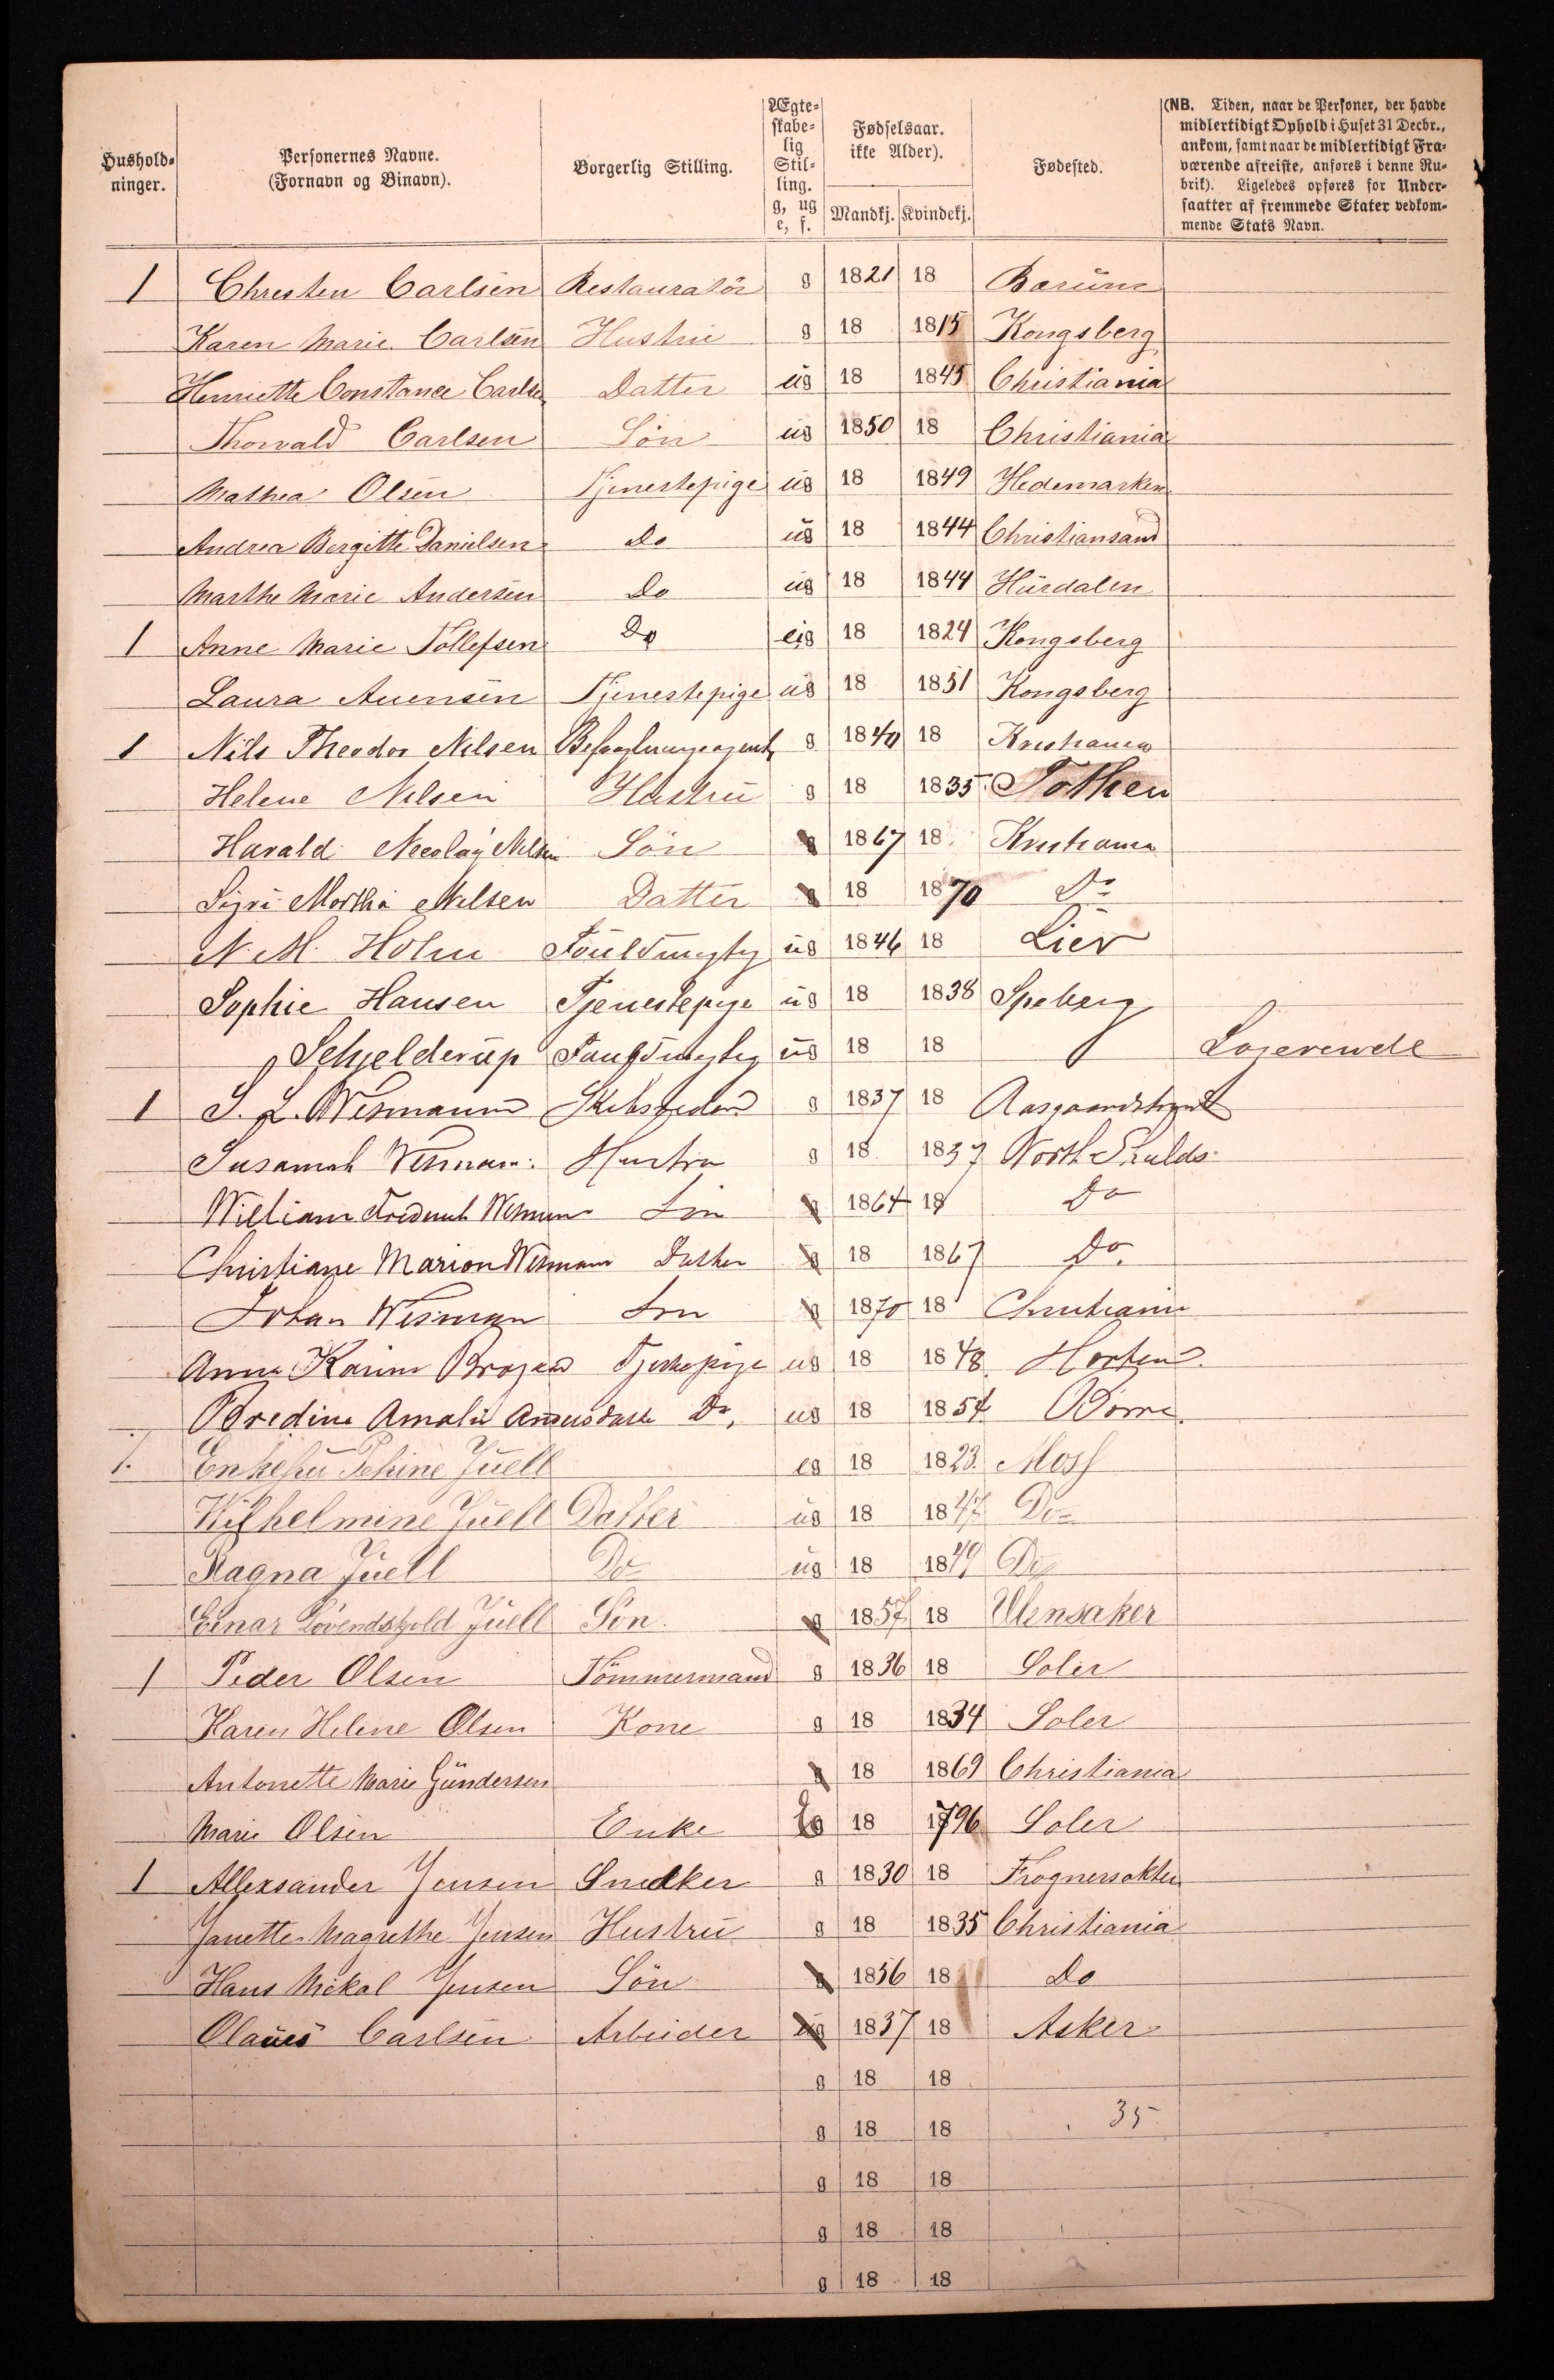 Hushold-
ninger.
Personernes Navne.
(Fornavn og Binavn).
Borgerlig Stilling.
Ægte-
skabe-
lig
Stil-
ling.
g, ug
e, f.
Fødselsaar.
ikke Alder).
Mandkj. Kvindekj.
Fødested.
(NB. Tiden, naar de Personer, der havde
midlertidigt Ophold i Huset 31 Decbr.,
ankom, samt naar de midlertidigt Fra-
værende afreiste, anføres i denne Ru-
brik). Ligeledes opføres for Under-
saatter af fremmede Stater vedkom-
mende Stats Navn.
1 Christen Carlsen Restauratör g 1821 18 Bærum
Karen Marie Carlsen Hustru g 18 1815 Kongsberg
Henriette Constance Carlsen Datter ug 18 1845 Christiania
Thorvald Carlsen Sön ug 1850 18 Christiania
Mathea Olsen Tjenestepige ug 18 1849 Hedemarken
Andrea Bergitte Danielsen Do ug 18 1844 Christiansand
Marthe Marie Andersen Do ug 18 1844 Hurdalen
1 Anne Marie Tollefsen Do eg 18 1824 Kongsberg
Laura Auensen Tjenestepige ug 18 1851 Kongsberg
1 Nils Theodor Nilsen g 1840 18 Kristiania
Helene Nilsen Hustru g 18 1835 Tothen
Harald Nicolay Nilsen Sön g 1867 18 Kristiania
Sigri Martha Nilsen Datter g 18 1870 Do
N. M. Holm Fuldmegtig ug 1846 18 Lier
Sophie Hansen Tjenestepige ug 18 1838 Speberg
Schjelderup Fuldmegtig ug 18 18 Logerende
1 S. L. Wismann Skibsreder g 1837 18 Aasgaardstrand
Susanah Wisman Hustru g 18 1837 North Shields
William Frederick Wisman Sön g 1864 18 Do
Christiane Marion Wisman Datter g 18 1867 Do.
Johan Wisman Sön g 1870 18 Christiania
Anna Karine ug 18 1848 Horten
Bredine Amalie Andersdatter Do, ug 18 1854 Borre.
1. Enkefru Petrine Juell eg 18 1823. Moss
Wilhelmine Juell Datter ug 18 1847 Do
Ragna Juell Do ug 18 1849 Do
Einar Lövendskjold Juell Sön. g 1857 18 Ulensaker
1 Peder Olsen Tömmermand g 1836 18 Soler
Karen Helene Olsen Kone g 18 1834 Soler
Antonette Marie Gundersen g 18 1869 Christiania
Marie Olsen Enke Eg 18 1796 Soler
1 Allexsander Jensen Snedker g 1830 18
Janette Magrethe Jensen Hustru g 18 1835 Christiania
Hans Mikal Jensen Sön g 1856 18 Do
Olaves Carlsen Arbeider ug 1837 18 Asker
g 18 18
g 18 18 35
g 18 18
g 18 18
g 18 18